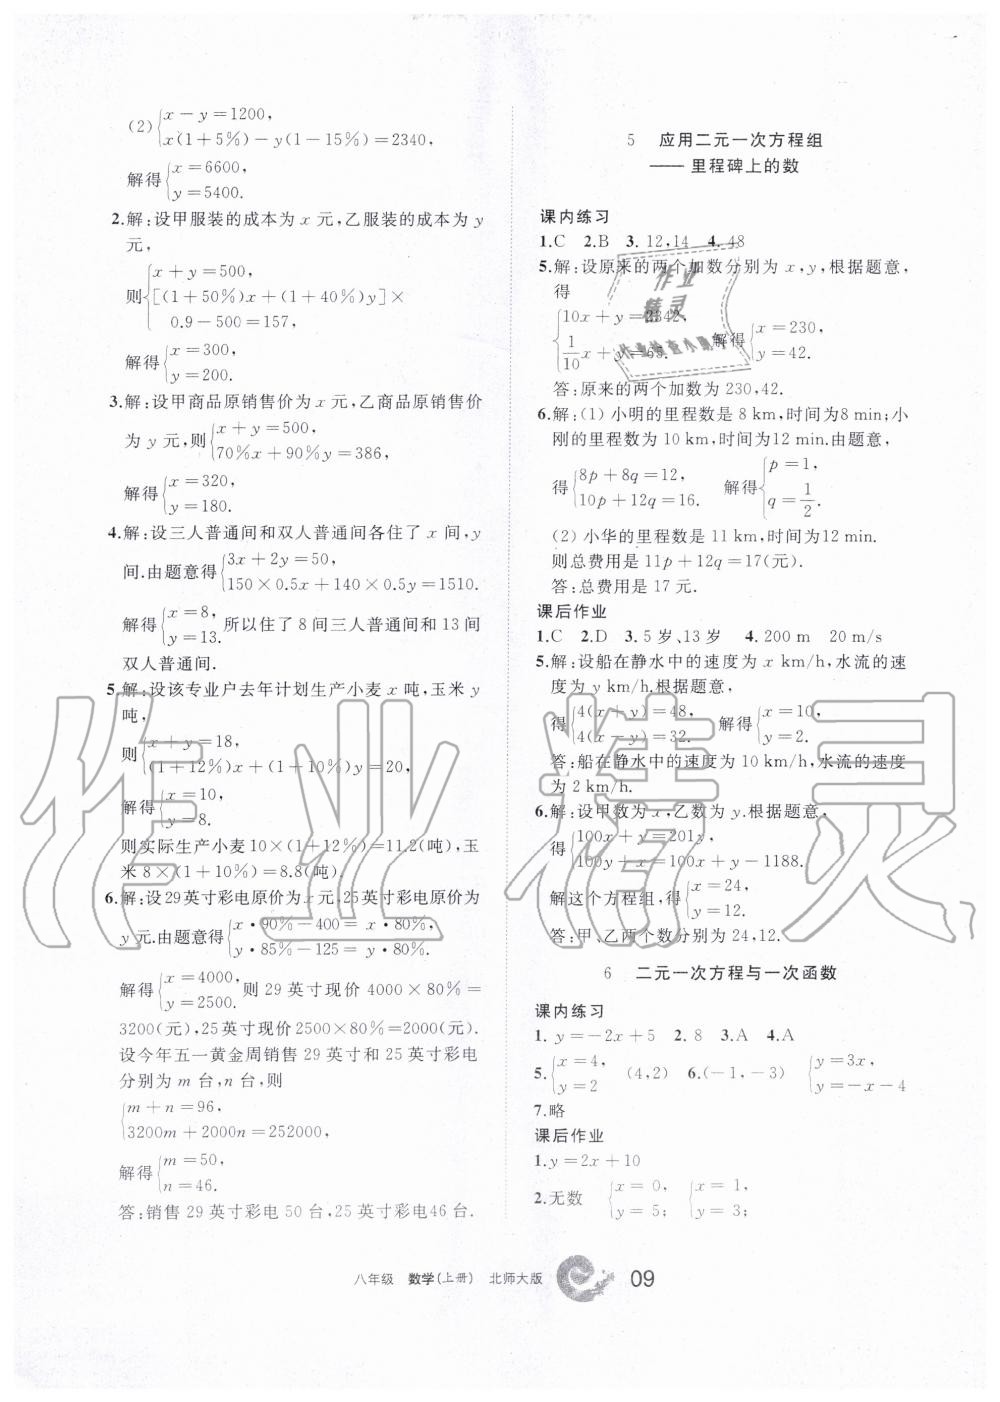 (2){x－y＝1200,
x(1＋5％)－y(1－15％)＝2340,
解得{x＝6600,
y＝5400.
2.解:设甲服装的成本为 x 元,乙服装的成本为 y
元,
则{x＋y＝500,
[(1＋50％)x＋(1＋40％)y]×
0.9－500＝157,
解得{x＝300,
y＝200.
3.解:设甲商品原销售价为 x 元,乙商品原销售价
为 y 元,则{x＋y＝500,
70％x＋90％y＝386,
解得{x＝320,
y＝180.
4.解:设三人普通间和双人普通间各住了 x 间,y
间.由题意得{3x＋2y＝50,
150×0.5x＋140×0.5y＝1510.
解得{x＝8,
y＝13.所以住了 8 间三人普通间和 13 间
双人普通间.
5.解:设该专业户去年计划生产小麦 x 吨,玉米 y
吨,
则{x＋y＝18,
(1＋12％)x＋(1＋10％)y＝20,
解得{x＝10,
y＝8.
则实际生产小麦 10×(1＋12％)＝11.2(吨),玉
米 8×(1＋10％)＝8.8(吨).
6.解:设29英寸彩电原价为 x 元,25英寸彩电原价为
y 元.由题意得{x·90％－400＝x·80％,
y·85％－125＝y·80％.
解得{x＝4000,
y＝2500.则 29 英寸现价 4000×80％＝
3200(元),25英寸现价2500×80％＝2000(元).
设今年五一黄金周销售 29 英寸和 25 英寸彩电
分别为 m 台,n 台,则
{m＋n＝96,
3200m＋2000n＝252000,
解得{m＝50,
n＝46.
答:销售 29 英寸彩电 50 台,25 英寸彩电46 台.
5 应用二元一次方程组
——里程碑上的数
课内练习
1.C 2.B 3.12,14 4.48
5.解:设原来的两个加数分别为 x,y,根据题意,
得
{10x＋y＝2342,
1/10x＋y＝65.解得{x＝230,
y＝42.
答:原来的两个加数为 230,42.
6.解:(1) 小明的里程数是 8 km,时间为8 min;小
刚的里程数为 10 km,时间为12 min.由题意,
得{8p＋8q＝12,
10p＋12q＝16.解得{p＝1,
q＝1/2.
(2) 小华的里程数是 11 km,时间为12 min.
则总费用是 11p＋12q＝17(元).
答:总费用是 17 元.
课后作业
1.C 2.D 3.5 岁、13 岁 4.200 m 20 m/s
5.解:设船在静水中的速度为 x km/h,水流的速
度为 y km/h.根据题意,
得{4(x＋y)＝48,
4(x－y)＝32.解得{x＝10,
y＝2.
答:船在静水中的速度为 10 km/h,水流的速度
为 2 km/h.
6.解:设甲数为 x,乙数为 y.根据题意,
得{100x＋y＝201y,
100y＋x＝100x＋y－1188.
解这个方程组,得{x＝24,
y＝12.
答:甲、乙两个数分别为 24,12.
6 二元一次方程与一次函数
课内练习
1. y＝－2x＋5 2.8 3.A 4.A
5.{x＝4,
y＝2 (4,2) 6.(－1,－3) {y＝3x,
y＝－x－4
7.略
课后作业
1.y＝2x＋10
2.无数 {x＝0,
y＝5; {x＝1,
y＝3;
八年级 数学(上册) 北师大版 09
作业精灵